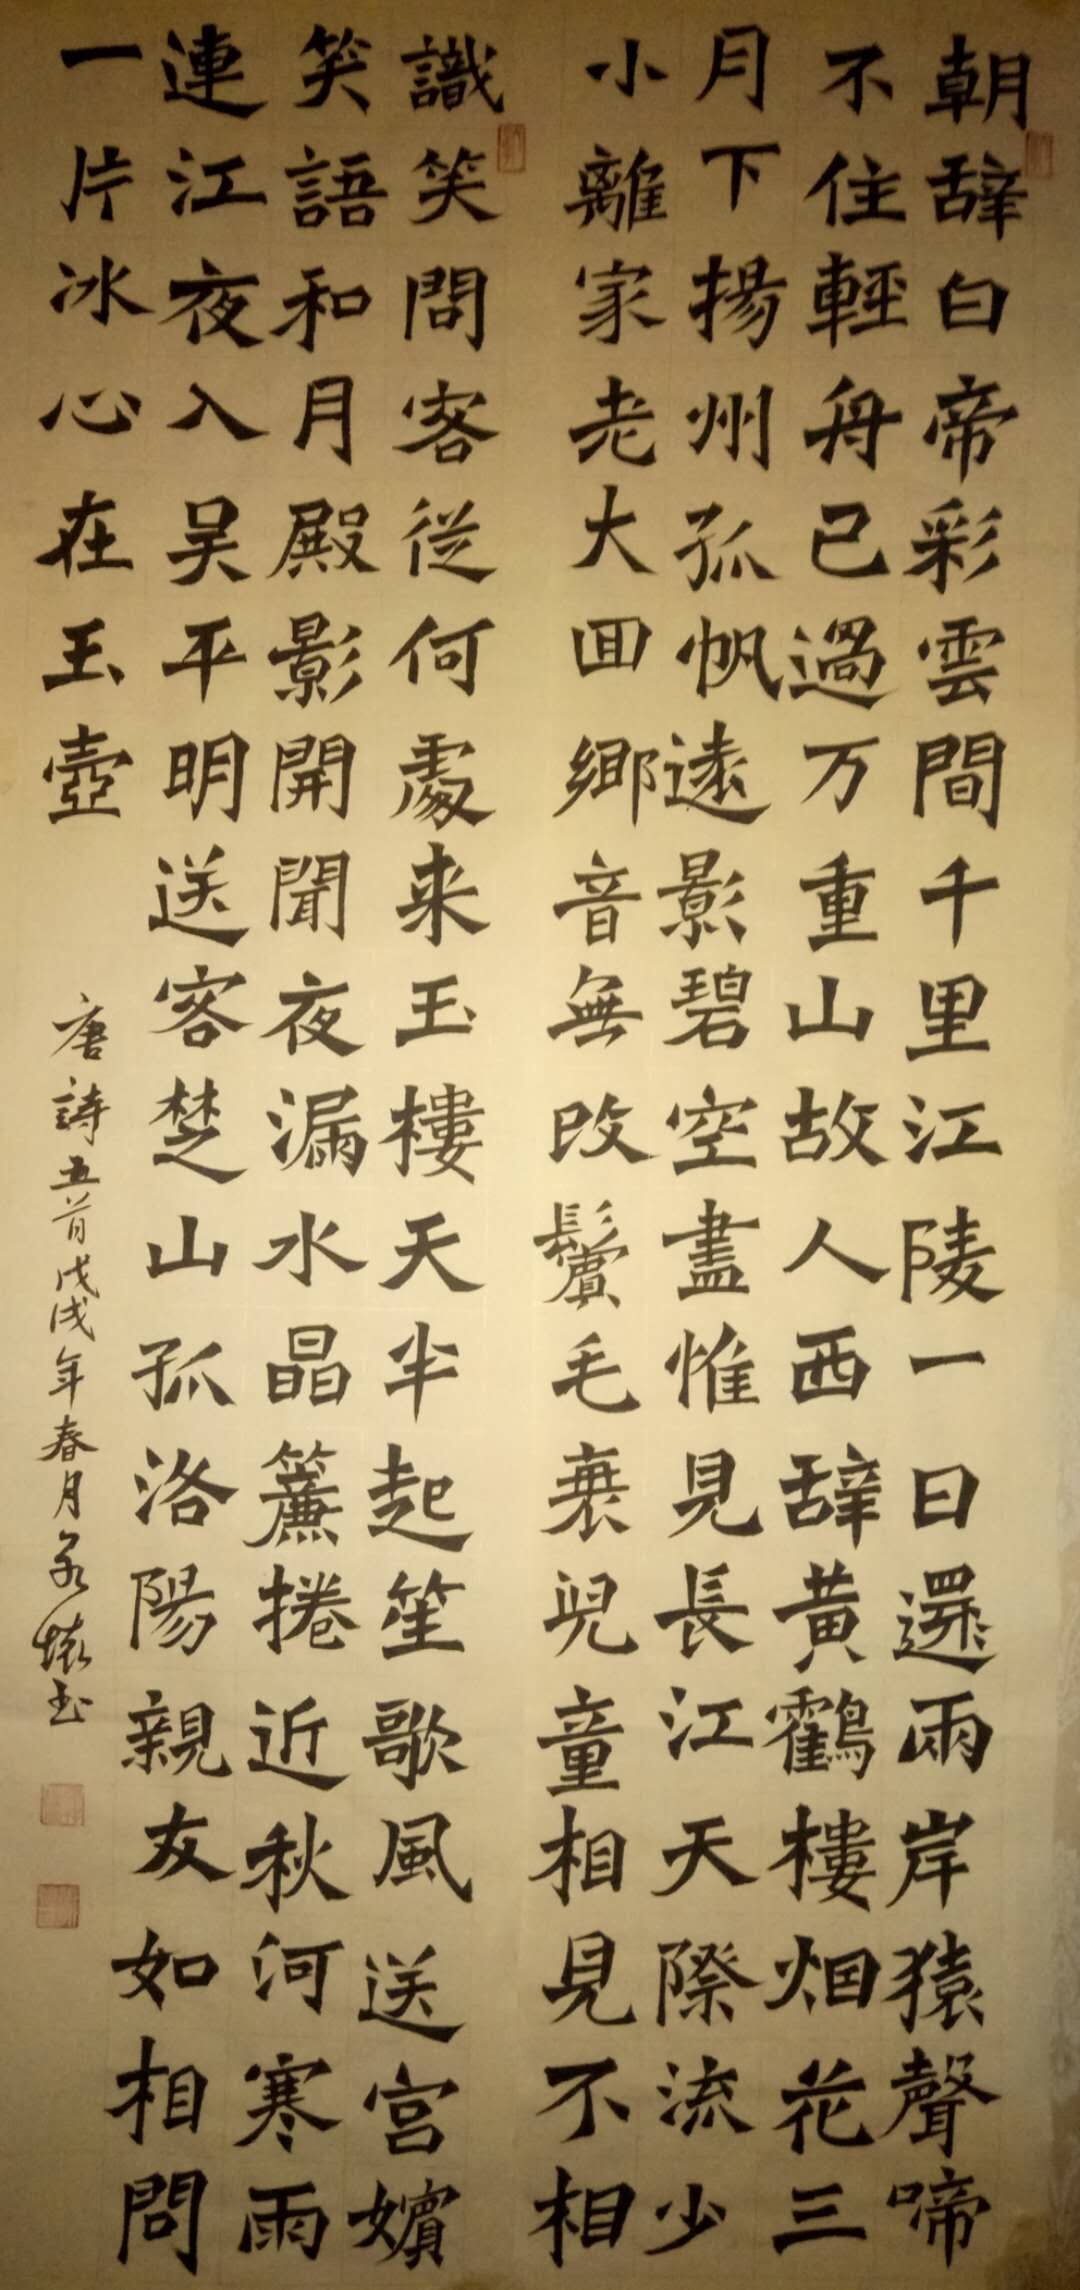 朝辞白帝彩雲間千里江陵一日還兩岸猿聲啼
不住輕舟已過万重山故人西辞黃鶴樓烟花三
月下揚州孤帆遠影碧空盡惟見長江天際流少
小離家老大囬鄉音無改鬢毛衰兒童相見不相
識笑問客從何處来玉樓天半起笙歌風送宮嬪
笑語和月殿影開聞夜漏水晶簾捲近秋河寒雨
連江夜入吴平明送客楚山孤洛陽親友如相問
一片冰心在玉壺
唐詩五首戊戌年春月